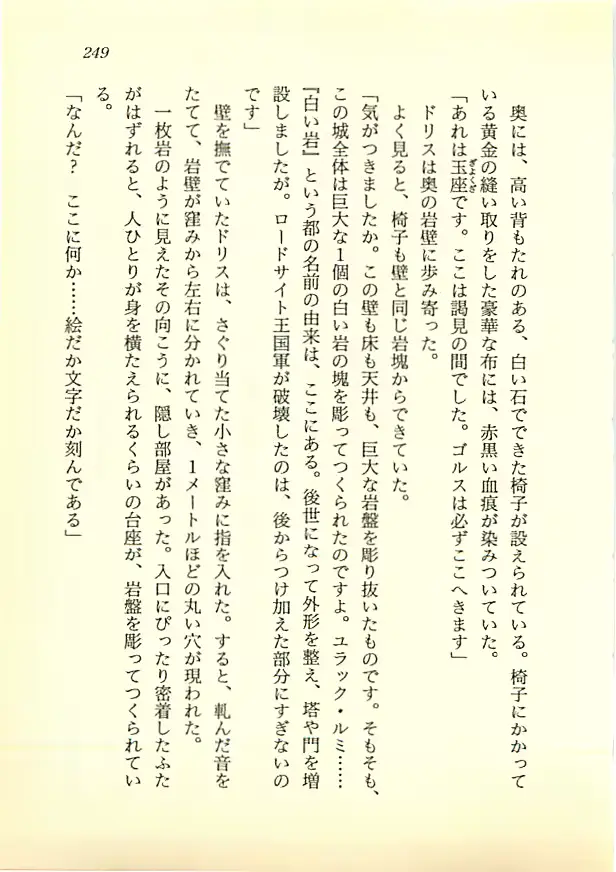 249
奥には、高い背もたれのある、白い石でできた椅子が設えられている。椅子にかかって
いる黄金の縫い取りをした豪華な布には、赤黒い血痕が染みついていた。
「あれは玉座です。ここは謁見の間でした。ゴルスは必ずここへきます」
ドリスは奥の岩壁に歩み寄った。
よく見ると、椅子も壁と同じ岩塊からできていた。
「気がつきましたか。この壁も床も天井も、巨大な岩盤を彫り抜いたものです。そもそも、
この城全体は巨大な1個の白い岩の塊を彫ってつくられたのですよ。ユラック・ルミ……
『白い岩』という都の名前の由来は、ここにある。後世になって外形を整え、塔や門を増
設しましたが。ロードサイト王国軍が破壊したのは、後からつけ加えた部分にすぎないの
です」
壁を撫でていたドリスは、さぐり当てた小さな窪みに指を入れた。すると、軋んだ音を
たてて、岩壁が窪みから左右に分かれていき、1メートルほどの丸い穴が現われた。
一枚岩のように見えたその向こうに、隠し部屋があった。入口にぴったり密着したふた
がはずれると、人ひとりが身を横たえられるくらいの台座が、岩盤を彫ってつくられてい
る。
「なんだ？　ここに何か……絵だか文字だか刻んである」